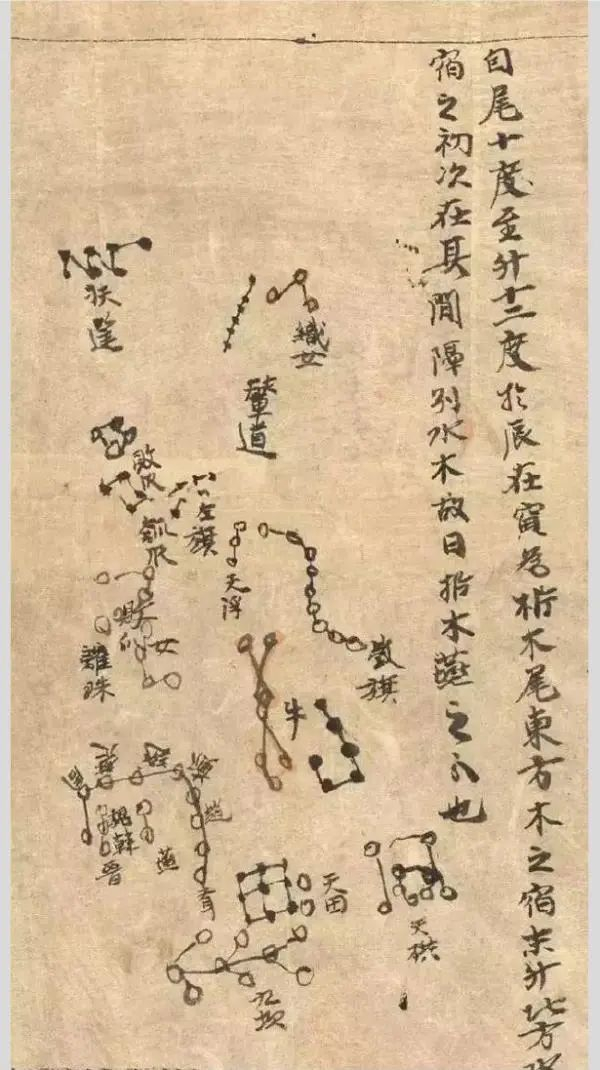 自尾十度至斗十二度於辰在寅為析木尾東方木之宿末斗北方水
宿之初次在其間隔別水木故曰析木燕之分也
織女
輦道
扶筐
敗瓜
瓠瓜
左旗
天浮
旗
女
離珠
牛
魏
韓
晉
燕
天田
九坎
天